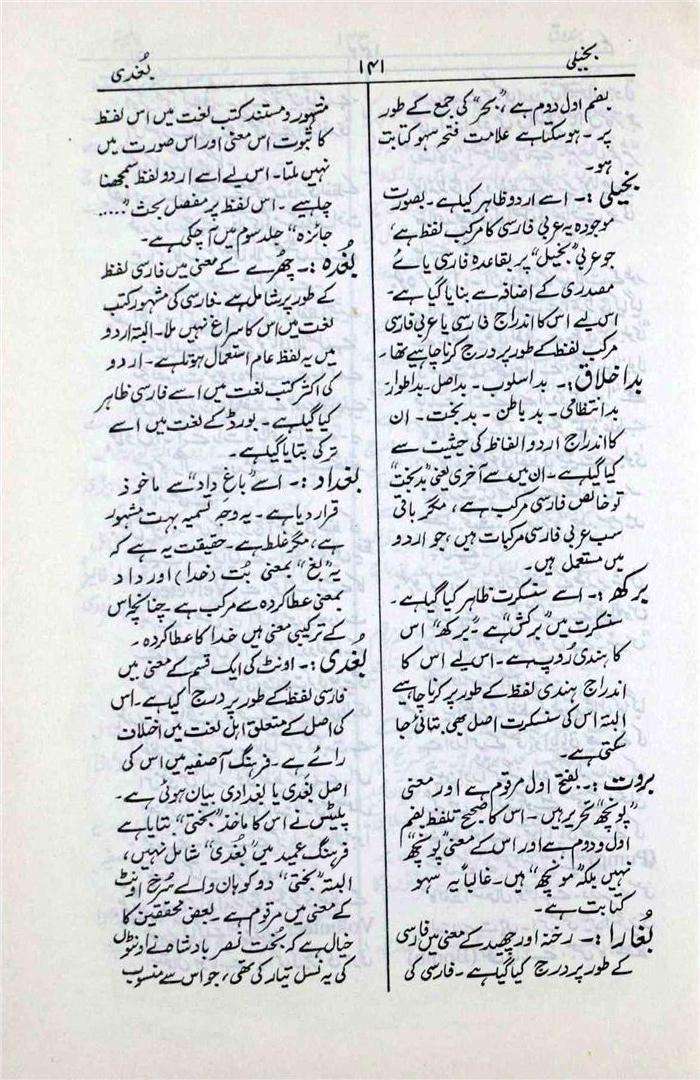 بخیلی
۱۴۱
بُغدی
بضم اول دوم ہے، ’’بحر‘‘ کی جمع کے طور
پر۔ ہوسکتا ہے علامت فتحہ سہو کتابت
ہو۔
بخیلی :۔ اسے اردو ظاہر کیا ہے۔ بصورت
موجودہ یہ عربی فارسی کا مرکب لفظ ہے،
جو عربی ’’بخیل‘‘ پر بقاعدہ فارسی یائے
مصدری کے اضافہ سے بنایا گیا ہے۔
اس لیے اس کا اندراج فارسی یا عربی فارسی
مرکب لفظ کے طور پر درج کرنا چاہیے تھا۔
بداخلاق :۔ بداسلوب۔ بداصل۔ بداطوار۔
بدانتظامی۔ بدباطن۔ بدبخت۔ ان
کا اندراج اردو الفاظ کی حیثیت سے
کیا گیا ہے۔ ان میں سے آخری یعنی ’’بدبخت‘‘
تو خالص فارسی مرکب ہے، مگر باقی
سب عربی فارسی مرکبات ہیں، جو اردو
میں مستعمل ہیں۔
برکھ :۔ اسے سنسکرت ظاہر کیا گیا ہے۔
سنسکرت میں ’’برکش‘‘ ہے۔ ’’برکھ‘‘ اس
کا ہندی رُوپ ہے۔ اس لیے اس کا
اندراج ہندی لفظ کے طور پر کرنا چاہیے
البتہ اس کی سنسکرت اصل بھی بتائی جا
سکتی ہے۔
بروت :۔ بفتح اول مرقوم ہے اور معنی
’’پونچھ‘‘ تحریر ہیں۔ اس کا صحیح تلفظ بضم
اول و دوم ہے اور اس کے معنی ’’پونچھ‘‘
نہیں بلکہ ’’مونچھ‘‘ ہیں۔ غالباً یہ سہو
کتابت ہے۔
بُغارا :۔ رخنہ اور چھید کے معنی میں فارسی
کے طور پر درج کیا گیا ہے۔ فارسی کی
مشہور و مستند کتب لغت میں اس لفظ
کا ثبوت اس معنی اور اس صورت میں
نہیں ملتا۔ اس لیے اسے اردو لفظ سمجھنا
چاہیے۔ اس لفظ پر مفصل بحث ’’.....
جائزہ‘‘ جلد سوم میں آ چکی ہے۔
بُغدہ :۔ چھُرے کے معنی میں فارسی لفظ
کے طور پر شامل ہے۔ فارسی کی مشہور کتب
لغت میں اس کا سراغ نہیں ملا۔ البتہ اردو
میں یہ لفظ عام استعمال ہوتا ہے۔ اردو
کی اکثر کتب لغت میں اسے فارسی ظاہر
کیا گیا ہے۔ بورڈ کے لغت میں اسے
ترکی بتایا گیا ہے۔
بغداد :۔ اسے ’’باغِ داد‘‘ سے ماخوذ
قرار دیا ہے۔ یہ وجہ تسمیہ بہت مشہور
ہے، مگر غلط ہے۔ حقیقت یہ ہے کہ
یہ ’’بغ‘‘ بمعنی بُت (خدا) اور داد
بمعنی عطا کردہ سے مرکب ہے۔ چنانچہ اس
کے ترکیبی معنی ہیں خدا کا عطا کردہ۔
بُغدی :۔ اونٹ کی ایک قسم کے معنی میں
فارسی لفظ کے طور پر درج کیا ہے۔ اس
کی اصل کے متعلق اہلِ لغت میں اختلاف
رائے ہے۔ فرہنگ آصفیہ میں اس کی
اصل بغدی یا بغدادی بیان ہوئی ہے۔
پلیٹس نے اس کا ماخذ ’’بختی‘‘ بتایا ہے
فرہنگ عمید میں ’’بُغدی‘‘ شامل نہیں،
البتہ ’’بختی‘‘ دو کوہان والے سُرخ اونٹ
کے معنی میں مرقوم ہے۔ بعض محققین کا
خیال ہے کہ بُخت نصر بادشاہ نے اونٹوں
کی یہ نسل تیار کی تھی، جو اس سے منسوب